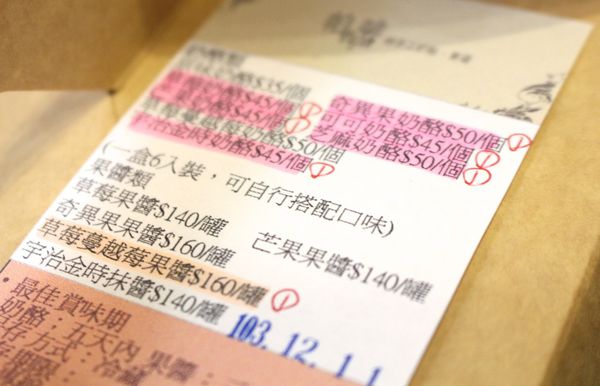 奶酪類
原味奶酪$35/個
奶酪$45/個 奇異果奶酪$50/個
奶酪$45/個 可可奶酪$45/個
草莓蔓越莓奶酪$50/個 芝麻奶酪$50/個
宇治金時奶酪$45/個
(一盒6入裝，可自行搭配口味)
果醬類
草莓果醬$140/罐 芒果果醬$140/罐
奇異果果醬$160/罐
草莓蔓越莓果醬$160/罐 1
宇治金時抹醬$140/罐
103.12.11
•最佳賞味期
奶酪：五天內 果醬：
保存方式：冷藏